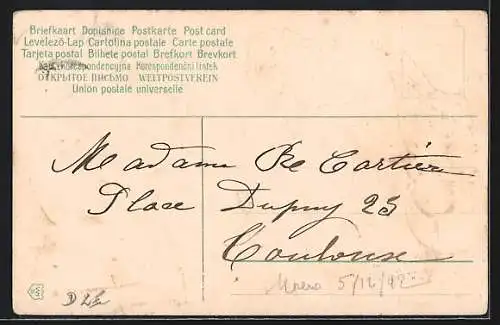 Briefkaart Dopisnice Postkarte Post card
Levelező-Lap Cartolina postale Carte postale
Tarjeta postal Bilhete postal Brefkort Brevkort
Karta korespondencyjna Korespondenční lístek
ОТКРЫТОЕ ПИСЬМО WELTPOSTVEREIN
Union postale universelle
Madame Cartier
Place Dupuy 25
Toulouse
5/12/02